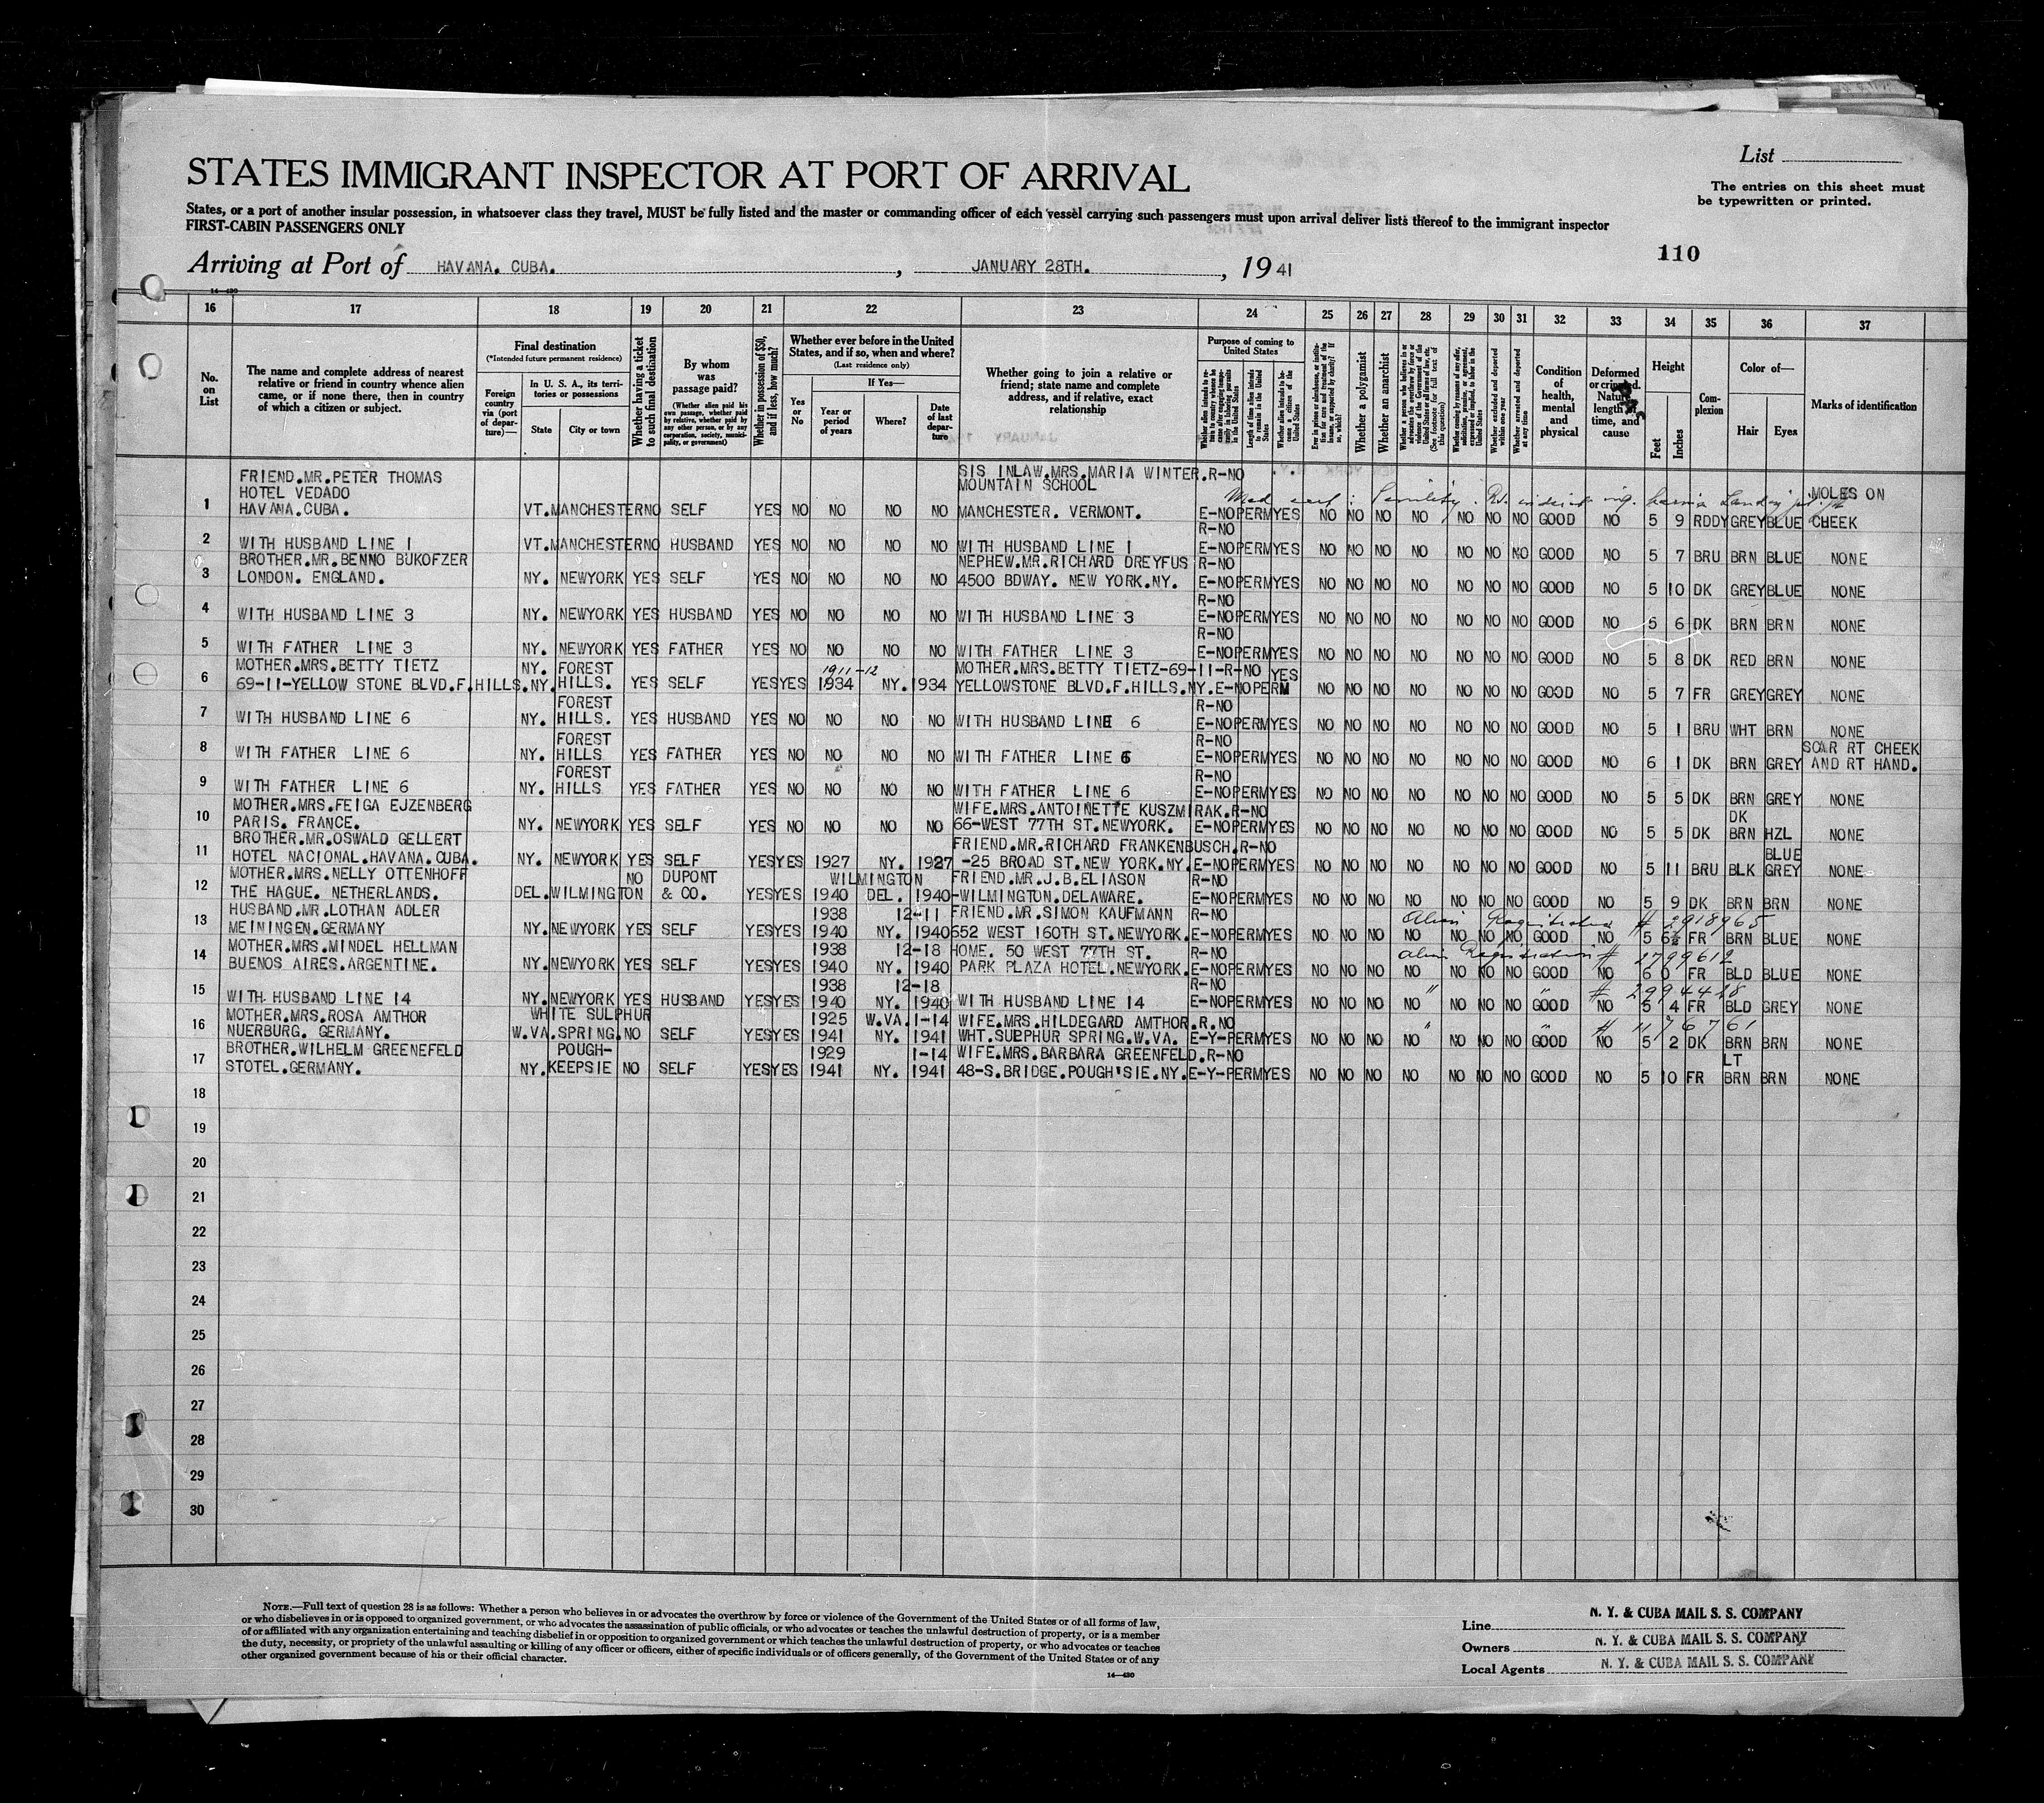 List
The entries on this sheet must
be typewritten or printed.
STATES IMMIGRANT INSPECTOR AT PORT OF ARRIVAL
States, or a port of another insular possession, in whatsoever class they travel, MUST be fully listed and the master or commanding officer of each vessel carrying such passengers must upon arrival deliver lists thereof to the immigrant inspector
FIRST-CABIN PASSENGERS ONLY
110
Arriving at Port of HAVANA. CUBA. , JANUARY 28TH. , 19 41
14—430
16 17 18 19 20 21 22 23 24 25 26 27 28 29 30 31 32 33 34 35 36 37
No. on List
The name and complete address of nearest relative or friend in country whence alien came, or if none there, then in country of which a citizen or subject.
Final destination
(*Intended future permanent residence)
Foreign country via (port of departure)—
In U. S. A., its territories or possessions
State
City or town
Whether having a ticket to such final destination
By whom was passage paid?
(Whether alien paid his own passage, whether paid by relative, whether paid by any other person, or by any corporation, society, municipality, or government)
Whether in possession of $50, and if less, how much?
Whether ever before in the United States, and if so, when and where?
(Last residence only)
Yes or No
If Yes—
Year or period of years
Where?
Date of last departure
Whether going to join a relative or friend; state name and complete address, and if relative, exact relationship
Purpose of coming to United States
Length of time alien intends to remain in the United States
Whether alien intends to become a citizen of the United States
Whether a polygamist
Whether an anarchist
Whether excluded and deported within one year
Whether arrested and deported at any time
Condition of health, mental and physical
Deformed or crippled. Nature, length of time, and cause
Height
Feet
Inches
Complexion
Color of—
Hair
Eyes
Marks of identification
FRIEND.MR.PETER THOMAS SIS INLAW.MRS.MARIA WINTER.R-NO
HOTEL VEDADO MOUNTAIN SCHOOL MOLES ON
1 HAVANA.CUBA. VT.MANCHESTER NO SELF YES NO NO NO NO MANCHESTER. VERMONT. E-NO PERM YES NO NO NO NO NO NO NO GOOD NO 5 9 RDDY GREY BLUE CHEEK
R-NO
2 WITH HUSBAND LINE 1 VT.MANCHESTER NO HUSBAND YES NO NO NO NO WITH HUSBAND LINE 1 E-NO PERM YES NO NO NO NO NO NO NO GOOD NO 5 7 BRU BRN BLUE NONE
BROTHER.MR.BENNO BUKOFZER NEPHEW.MR.RICHARD DREYFUS R-NO
3 LONDON. ENGLAND. NY. NEWYORK YES SELF YES NO NO NO NO 4500 BDWAY. NEW YORK.NY. E-NO PERM YES NO NO NO NO NO NO NO GOOD NO 5 10 DK GREY BLUE NONE
R-NO
4 WITH HUSBAND LINE 3 NY. NEWYORK YES HUSBAND YES NO NO NO NO WITH HUSBAND LINE 3 E-NO PERM YES NO NO NO NO NO NO NO GOOD NO 5 6 DK BRN BRN NONE
R-NO
5 WITH FATHER LINE 3 NY. NEWYORK YES FATHER YES NO NO NO NO WITH FATHER LINE 3 E-NO PERM YES NO NO NO NO NO NO NO GOOD NO 5 8 DK RED BRN NONE
MOTHER.MRS.BETTY TIETZ NY. FOREST 1911-12 MOTHER.MRS.BETTY TIETZ-69-11-R-NO YES
6 69-11-YELLOW STONE BLVD.F.HILLS.NY. HILLS. YES SELF YES YES 1934 NY. 1934 YELLOWSTONE BLVD.F.HILLS.NY.E-NO PERM NO NO NO NO NO NO NO GOOD NO 5 7 FR GREY GREY NONE
FOREST R-NO
7 WITH HUSBAND LINE 6 NY. HILLS. YES HUSBAND YES NO NO NO NO WITH HUSBAND LINE 6 E-NO PERM YES NO NO NO NO NO NO NO GOOD NO 5 1 BRU WHT BRN NONE
FOREST R-NO SCAR RT CHEEK
8 WITH FATHER LINE 6 NY. HILLS. YES FATHER YES NO NO NO NO WITH FATHER LINE 6 E-NO PERM YES NO NO NO NO NO NO NO GOOD NO 6 1 DK BRN GREY AND RT HAND.
FOREST R-NO
9 WITH FATHER LINE 6 NY. HILLS YES FATHER YES NO NO NO NO WITH FATHER LINE 6 E-NO PERM YES NO NO NO NO NO NO NO GOOD NO 5 5 DK BRN GREY NONE
MOTHER.MRS.FEIGA EJZENBERG WIFE.MRS.ANTOINETTE KUSZMIRAK.R-NO DK
10 PARIS. FRANCE. NY. NEWYORK YES SELF YES NO NO NO NO 66-WEST 77TH ST.NEWYORK. E-NO PERM YES NO NO NO NO NO NO NO GOOD NO 5 5 DK BRN HZL NONE
BROTHER.MR.OSWALD GELLERT FRIEND.MR.RICHARD FRANKENBUSCH.R-NO BLUE
11 HOTEL NACIONAL.HAVANA.CUBA. NY. NEWYORK YES SELF YES YES 1927 NY. 1927 -25 BROAD ST.NEW YORK.NY. E-NO PERM YES NO NO NO NO NO NO NO GOOD NO 5 11 BRU BLK GREY NONE
MOTHER.MRS.NELLY OTTENHOFF NO DUPONT WILMINGTON FRIEND.MR.J.B.ELIASON R-NO
12 THE HAGUE. NETHERLANDS. DEL.WILMINGTON & CO. YES YES 1940 DEL. 1940 -WILMINGTON.DELAWARE. E-NO PERM YES NO NO NO NO NO NO NO GOOD NO 5 9 DK BRN BRN NONE
HUSBAND.MR.LOTHAN ADLER 1938 12-11 FRIEND.MR.SIMON KAUFMANN R-NO Alien Registration # 2918965
13 MEININGEN.GERMANY NY.NEWYORK YES SELF YES YES 1940 NY. 1940 652 WEST 160TH ST.NEWYORK. E-NO PERM YES NO NO NO NO NO NO NO GOOD NO 5 6½ FR BRN BLUE NONE
MOTHER.MRS.MINDEL HELLMAN 1938 12-18 HOME. 50 WEST 77TH ST. R-NO Alien Registration # 2799612
14 BUENOS AIRES.ARGENTINE. NY.NEWYORK YES SELF YES YES 1940 NY. 1940 PARK PLAZA HOTEL.NEWYORK. E-NO PERM YES NO NO NO NO NO NO NO GOOD NO 6 0 FR BLD BLUE NONE
1938 12-18 R-NO " " # 2994428
15 WITH HUSBAND LINE 14 NY.NEWYORK YES HUSBAND YES YES 1940 NY. 1940 WITH HUSBAND LINE 14 E-NO PERM YES NO NO NO NO NO NO NO GOOD NO 5 4 FR BLD GREY NONE
MOTHER.MRS.ROSA AMTHOR WHITE SULPHUR 1925 W.VA. 1-14 WIFE.MRS.HILDEGARD AMTHOR.R.NO " " # 1176761
16 NUERBURG. GERMANY. W.VA.SPRING. NO SELF YES YES 1941 NY. 1941 WHT.SULPHUR SPRING.W.VA. E-Y-PERM YES NO NO NO NO NO NO NO GOOD NO 5 2 DK BRN BRN NONE
BROTHER.WILHELM GREENEFELD POUGH- 1929 1-14 WIFE.MRS.BARBARA GREENFELD.R-NO LT
17 STOTEL.GERMANY. NY.KEEPSIE NO SELF YES YES 1941 NY. 1941 48-S.BRIDGE.POUGH'SIE.NY. E-Y-PERM YES NO NO NO NO NO NO NO GOOD NO 5 10 FR BRN BRN NONE
18
19
20
21
22
23
24
25
26
27
28
29
30
NOTE.—Full text of question 28 is as follows: Whether a person who believes in or advocates the overthrow by force or violence of the Government of the United States or of all forms of law,
or who disbelieves in or is opposed to organized government, or who advocates the assassination of public officials, or who advocates or teaches the unlawful destruction of property, or is a member
of or affiliated with any organization entertaining and teaching disbelief in or opposition to organized government or which teaches the unlawful destruction of property, or who advocates or teaches
the duty, necessity, or propriety of the unlawful assaulting or killing of any officer or officers, either of specific individuals or of officers generally, of the Government of the United States or of any
other organized government because of his or their official character.
14—430
Line N. Y. & CUBA MAIL S. S. COMPANY
Owners N. Y. & CUBA MAIL S. S. COMPANY
Local Agents N. Y. & CUBA MAIL S. S. COMPANY